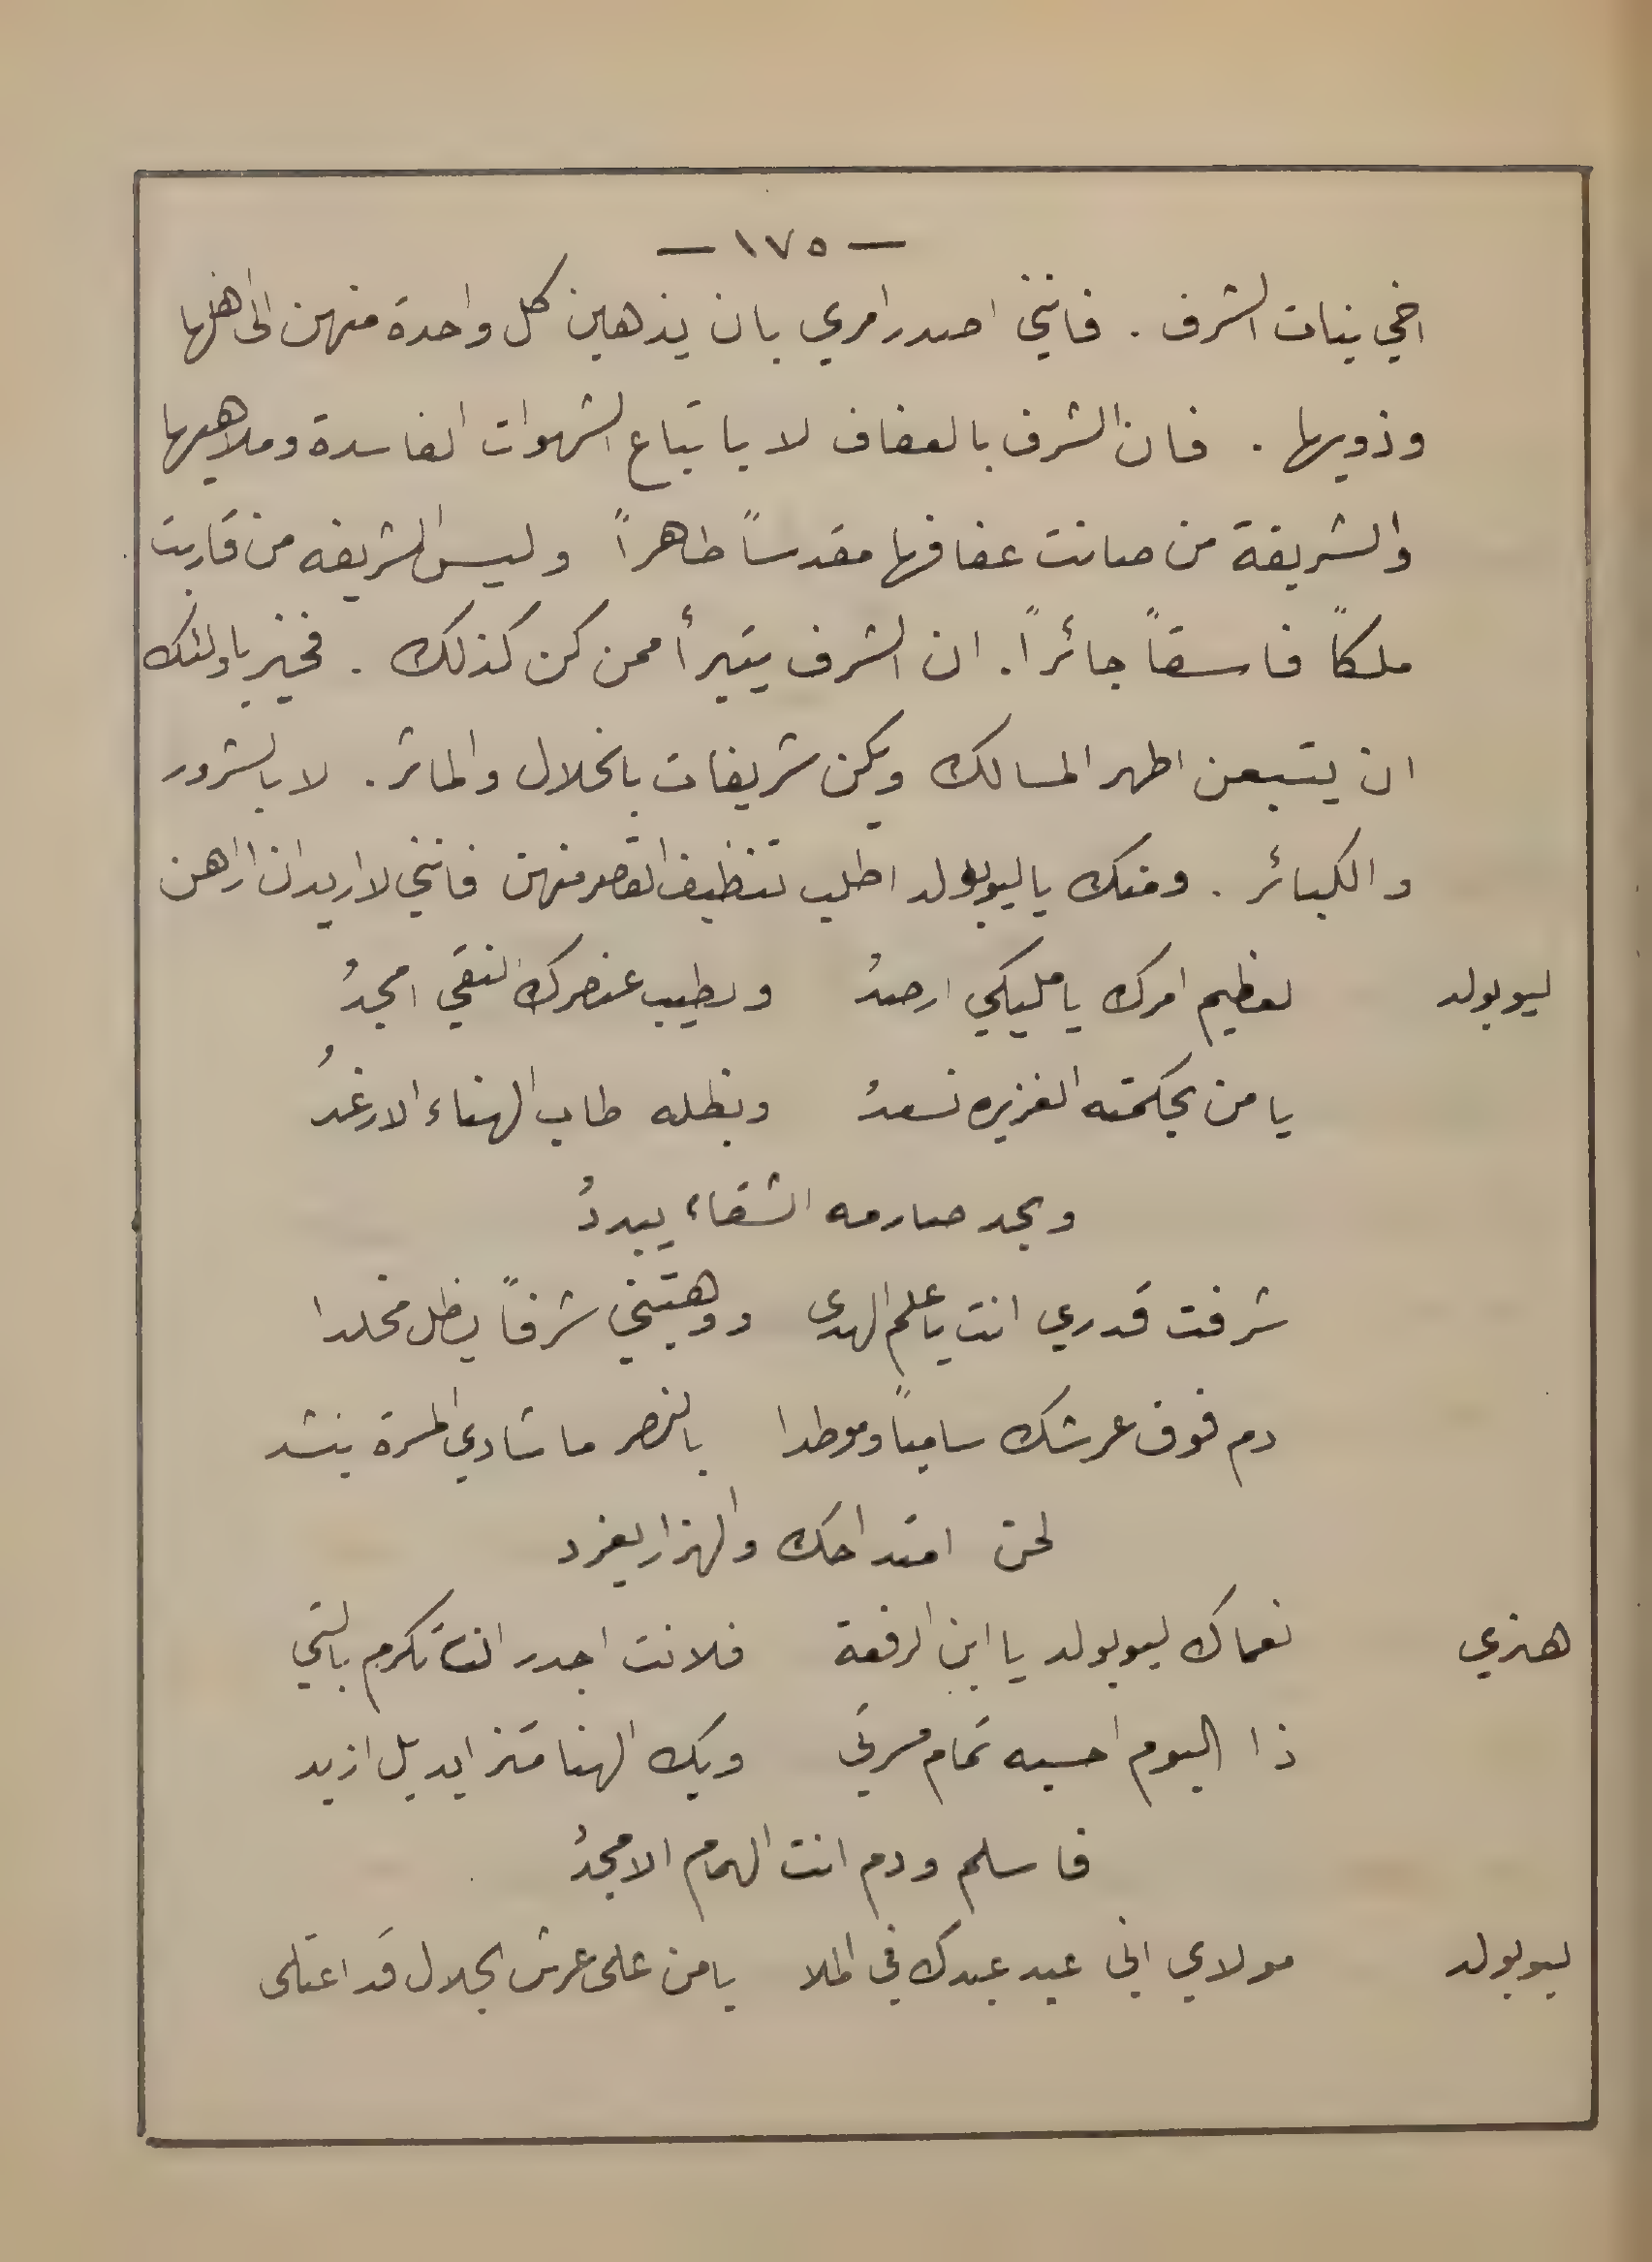 — ١٧٥ —
اخي بنات الشرف . فانني اصدر امري بان يذهبن كل واحدة منهن الى اهلها
وذويها . فان الشرف بالعفاف لا باتباع الشهوات الفاسدة وملاهيها
والشريفة من صانت عفافها مقدساً طاهراً وليس الشريفه من قاربت
ملكاً فاسقاً جائراً . ان الشرف يتبرأ ممن كن كذلك . فخير باولئك
ان يتبعن اطهر المسالك ويكن شريفات بالخلال والماثر . لا بالشرور
والكبائر . ومنك يا ليوبولد اطلب تنظيف القصر منهن فانني لا اريد ان اراهن
ليوبولد لعظيم امرك يا مليكي ارصدُ وبطيب عنصرك النقي امجدُ
يا من بحكمته الغزيره نسعدُ وبظله طاب الهناء الارغدُ
وبحد صارمه الشقاء يبددُ
شرفت قدري انت يا علم الهدى ووهبتني شرفاً يظل مخلدا
دم فوق عرشك سامياً وموطدا بالنصر ما شادي المسرة ينشد
لحن امتداحك والهزار يغرد
هنري نعماك ليوبولد يا ابن الرفعة فلانت اجدر ان تكرم بالتي
ذا اليوم احسبه تمام مسرتي وبك الهنا متزايد بل ازيد
فاسلم ودم انت الهمام الامجدُ
ليوبولد مولاي اني عبد عبدك في الملا يا من على عرش الجلال قد اعتلى